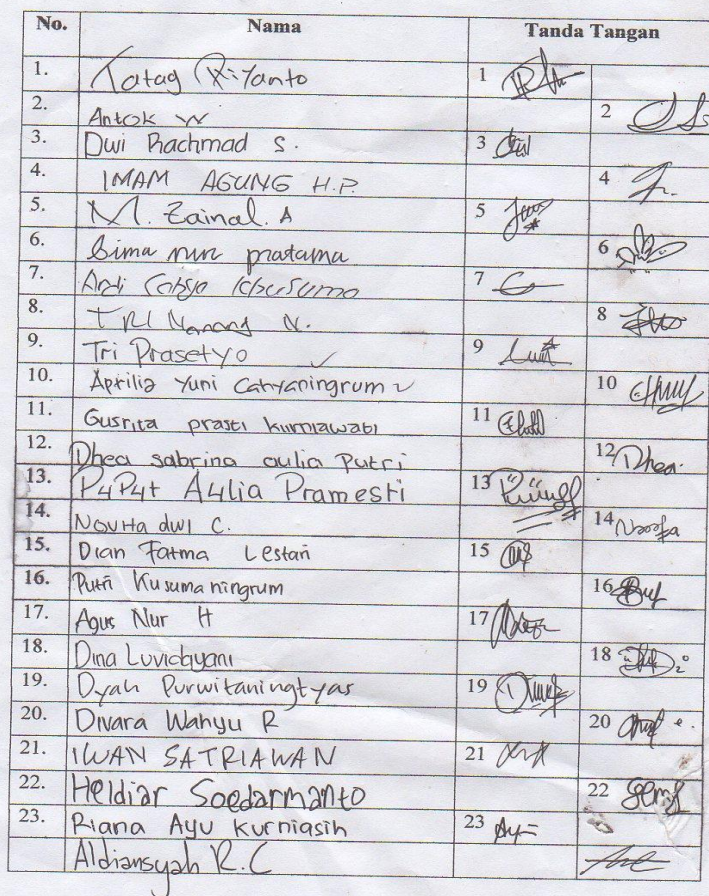 No. Nama Tanda Tangan
1. Tatag Riyanto 1
2. Antok W 2
3. Dwi Rachmad S. 3
4. IMAM AGUNG H.P. 4
5. M. Zainal. A 5
6. Bima nur pratama 6
7. Ardi 7
8. TRI Nanang N. 8
9. Tri Prasetyo 9
10. Aprilia Yuni Cahyaningrum 10
11. Gusrita prasti kurniawati 11
12. Dhea sabrina aulia Putri 12 Dhea.
13. P4P4t A4lia Pramesti 13
14. Novita dwi C. 14
15. Dian Fatma Lestari 15
16. Putri Kusumaningrum 16
17. Agus Nur H 17
18. Dina 18
19. Dyah Purwitaningtyas 19
20. Divara Wahyu R 20
21. IWAN SATRIAWAN 21
22. Heldiar Soedarmanto 22
23. Riana Ayu Kurniasih 23
Aldiansyah R.C